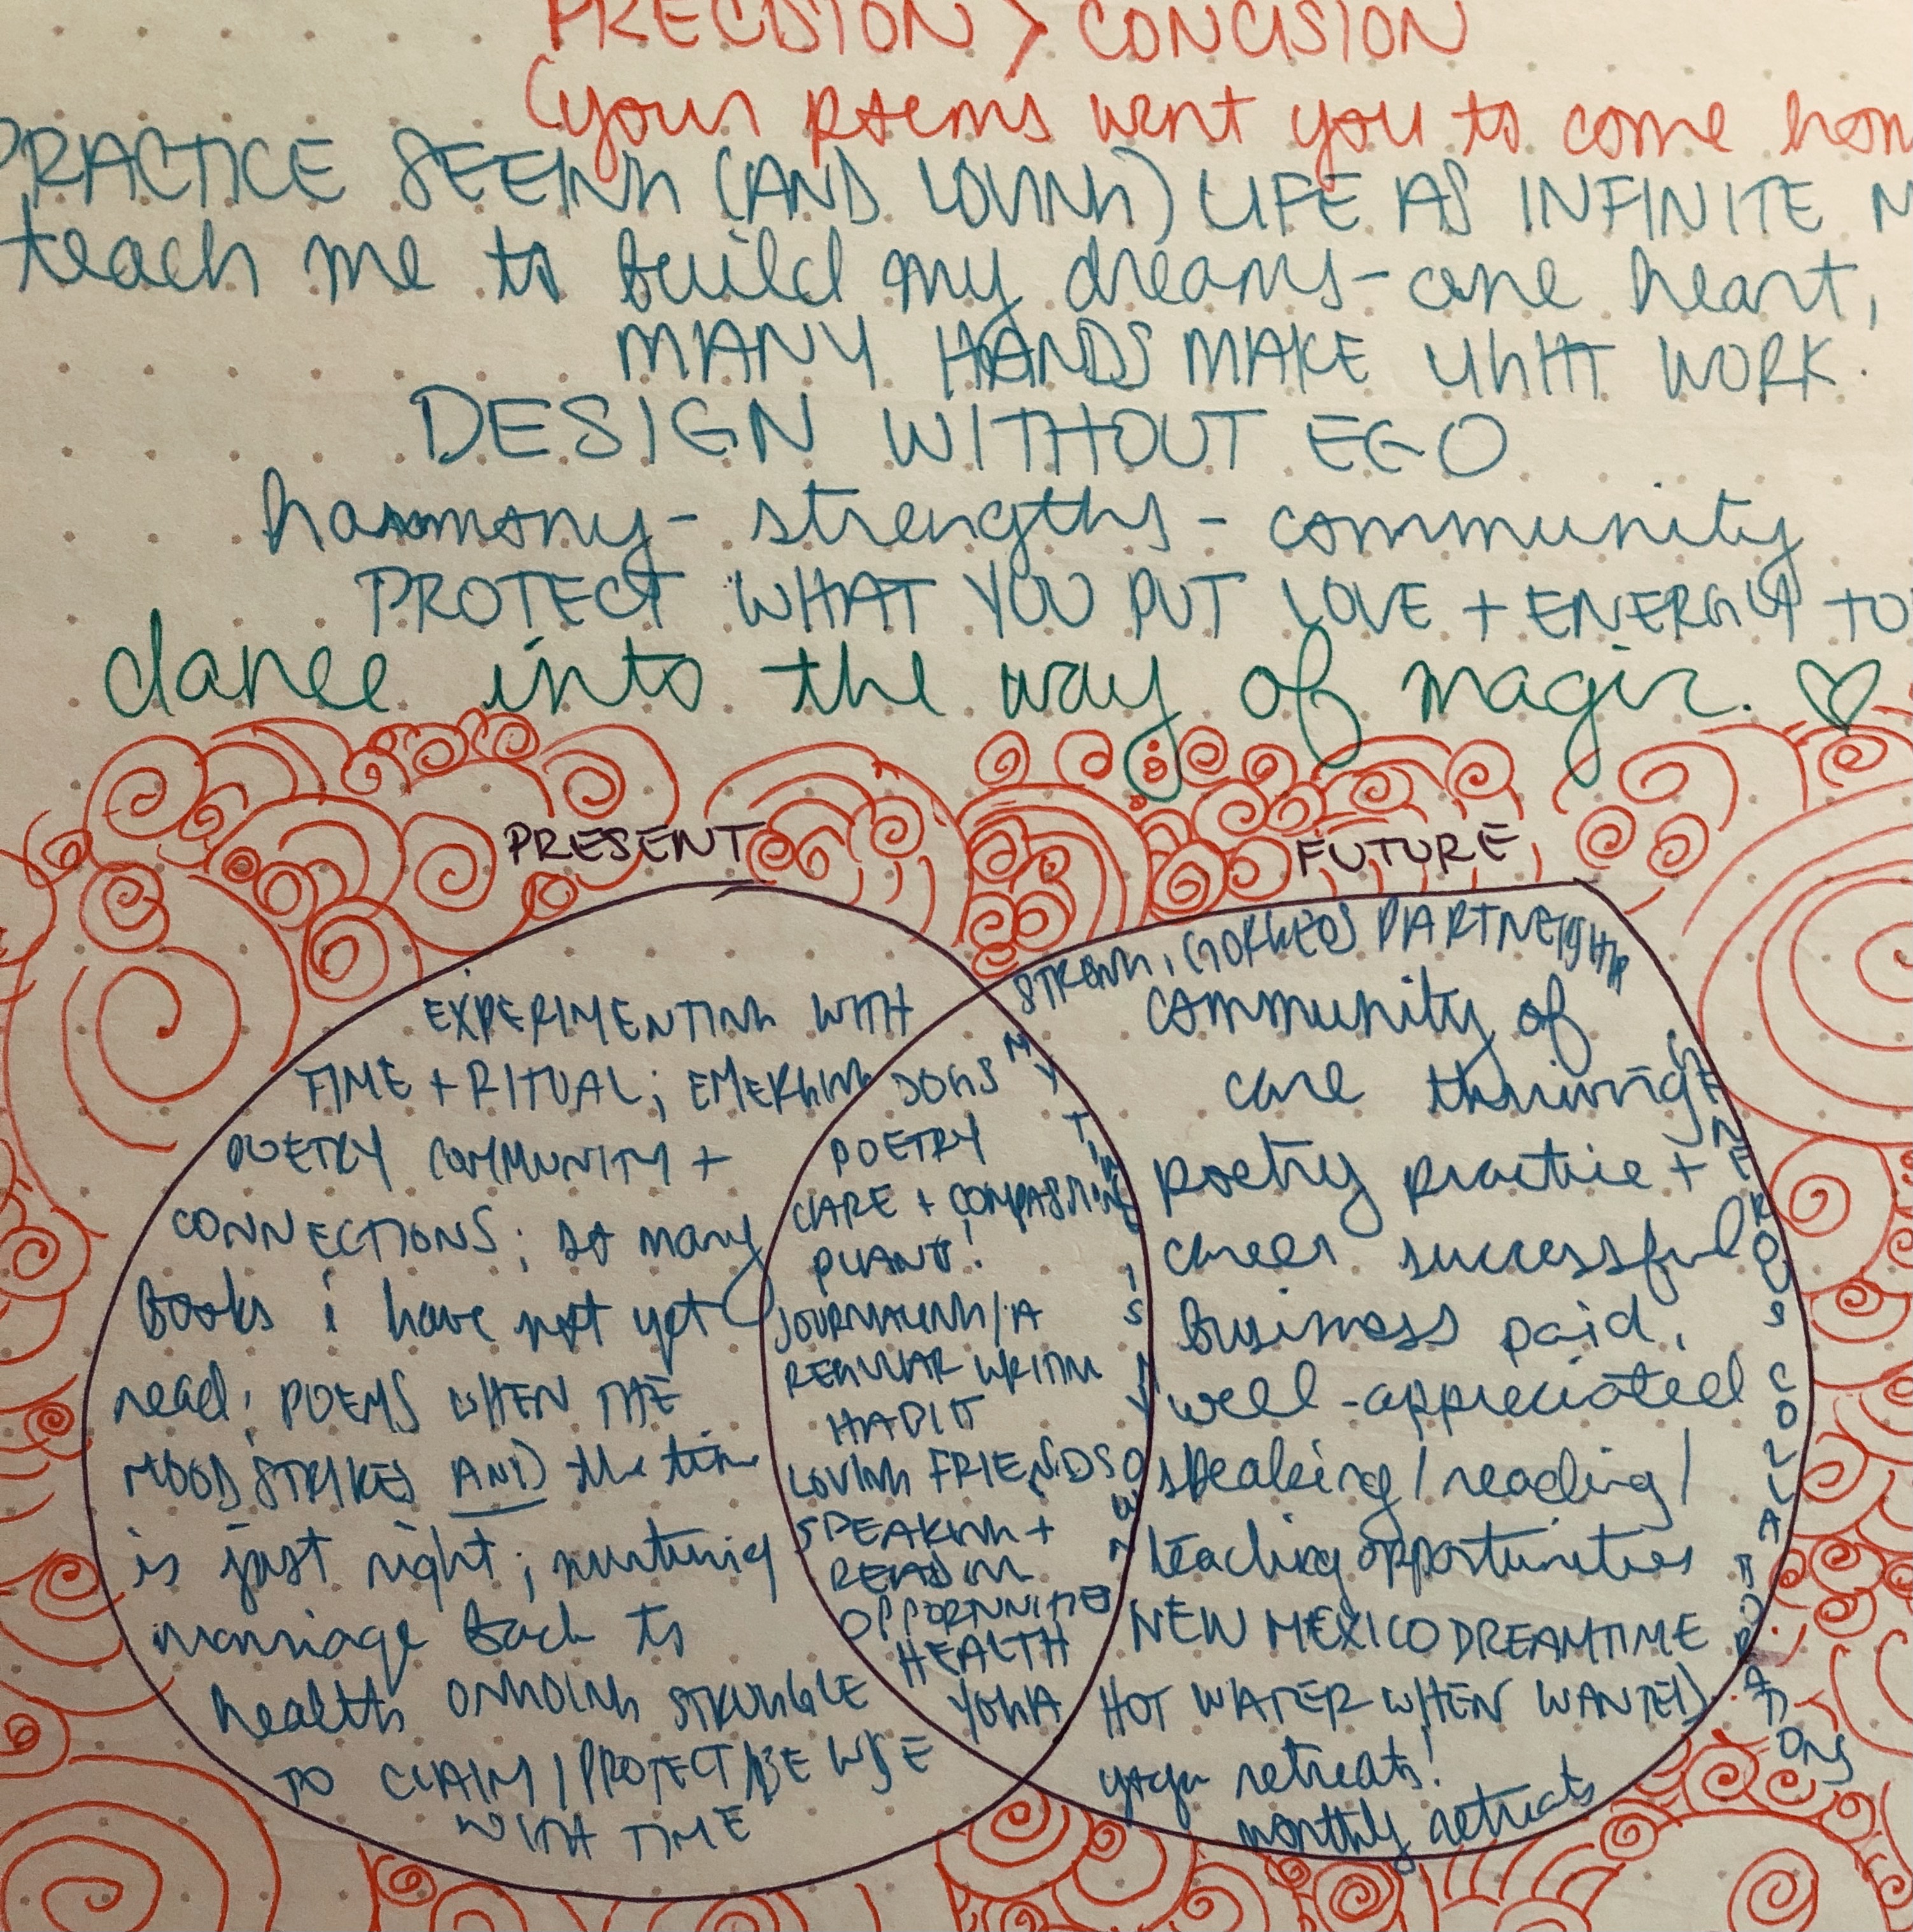 PRECISION > CONCISION
(your poems want you to come hom
PRACTICE SEEING (AND LOVING) LIFE AS INFINITE
teach me to build my dreams - one heart,
MANY HANDS MAKE LIGHT WORK.
DESIGN WITHOUT EGO
harmony - strengths - community
PROTECT WHAT YOU PUT LOVE + ENERGY TO
dance into the way of magic. ♡
PRESENT
EXPERIMENTING WITH
TIME + RITUAL; EMERGING
POETRY COMMUNITY +
CONNECTIONS; so many
books i have not yet
read; POEMS WHEN THE
MOOD STRIKES AND the time
is just right; nurturing
marriage back to
health ONGOING STRUGGLE
TO CLAIM/PROTECT/BE WISE
WITH TIME
DOGS
POETRY
CARE + COMPASSION
PLANTS!
JOURNALING/A
REGULAR WRITING
HABIT
LOVING FRIENDS
SPEAKING +
READING
OPPORTUNITIES
HEALTH
YOGA
MY TIME IS MY OWN
FUTURE
STRONG, GORGEOUS PARTNERSHIP
community of
care thriving
poetry practice +
career successful
business paid,
well-appreciated
speaking/reading/
teaching opportunities
NEW MEXICO DREAMTIME
HOT WATER WHEN WANTED
yoga retreats!
monthly retreats
GENEROUS COLLABORATIONS